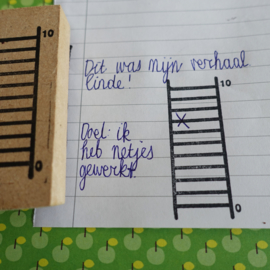 10
Dit was mijn verhaal
Einde!
10
Doel: ik
heb netjes
gewerkt.
X
0
0